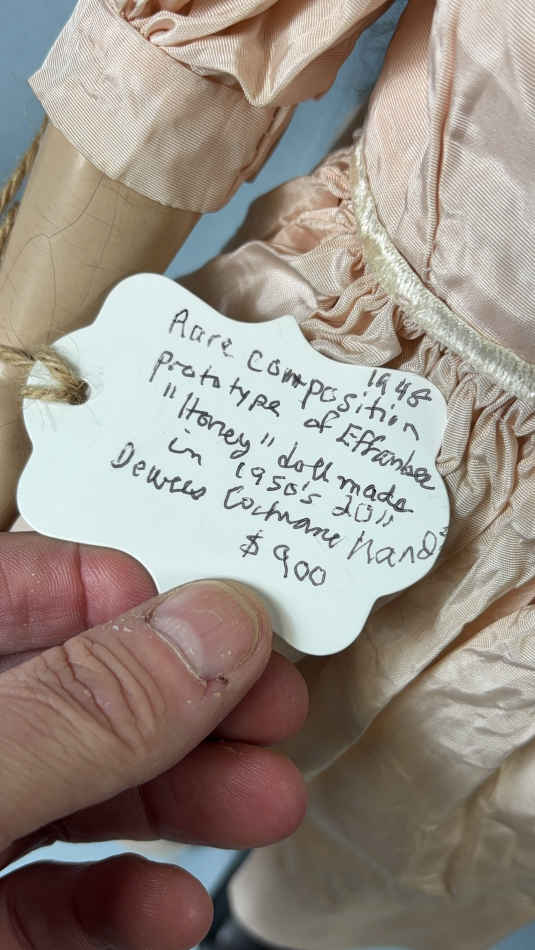 Rare composition 1948
prototype of Effanbee
"Honey" doll made
in 1950's 20"
Dewees Cochrane Hands
$900